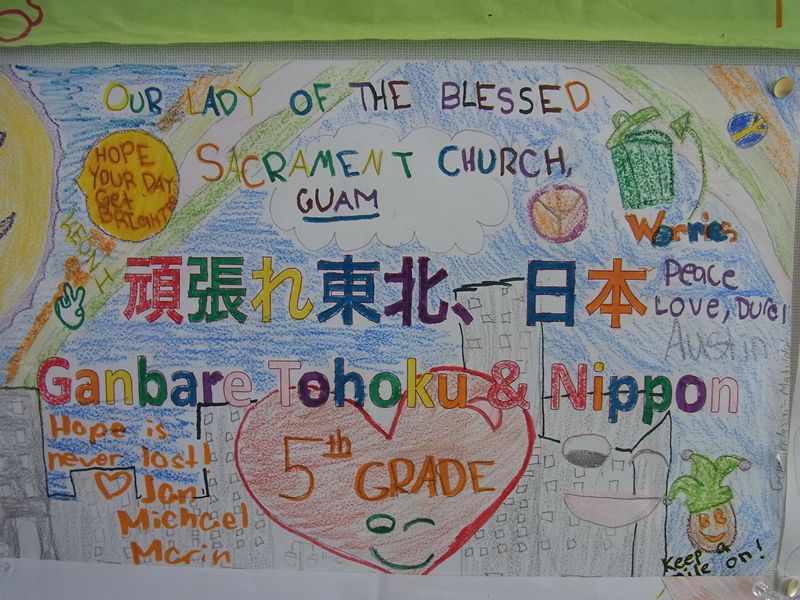 OUR LADY OF THE BLESSED
SACRAMENT CHURCH,
GUAM
HOPE
YOUR DAY
Get
BRIGHT
LEON H
Worries
頑張れ東北、日本
Peace
LOVE,
Austin
Ganbare Tohoku & Nippon
Hope is
never lost!
Jan
Michael
Marin
5th GRADE
Keep a
on!